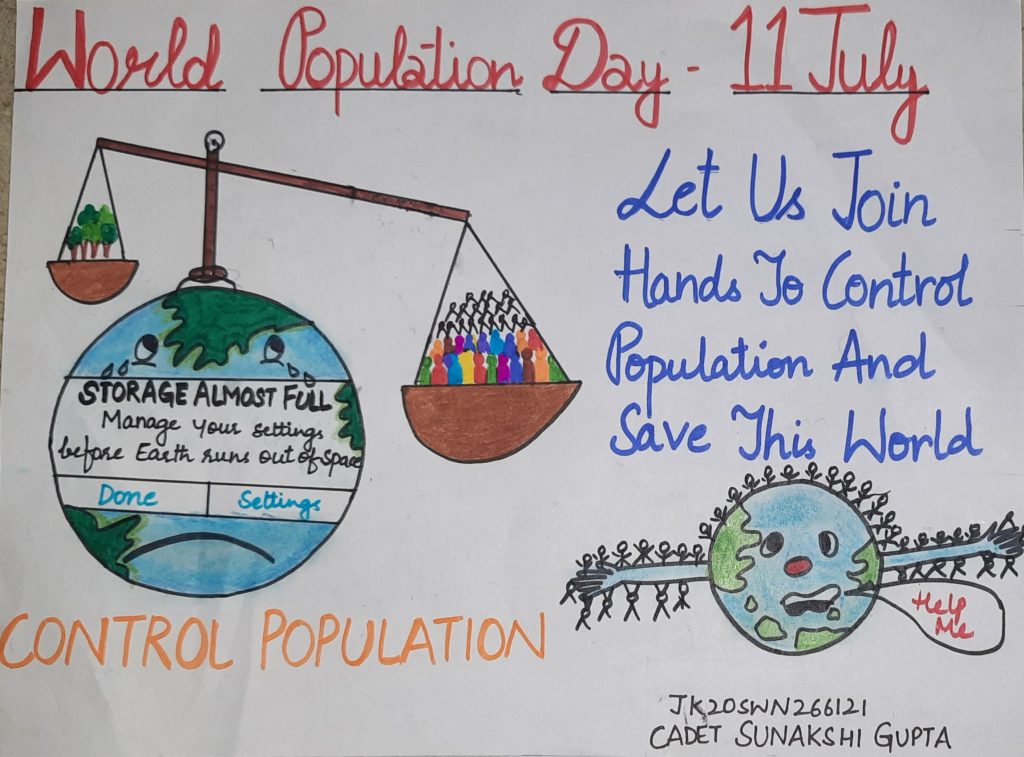 World Population Day - 11 July
Let Us Join
Hands To Control
Population And
Save This World
STORAGE ALMOST FULL
Manage your settings
before Earth runs out of space
Done Settings
CONTROL POPULATION
Help
Me
JK20SWN266121
CADET SUNAKSHI GUPTA